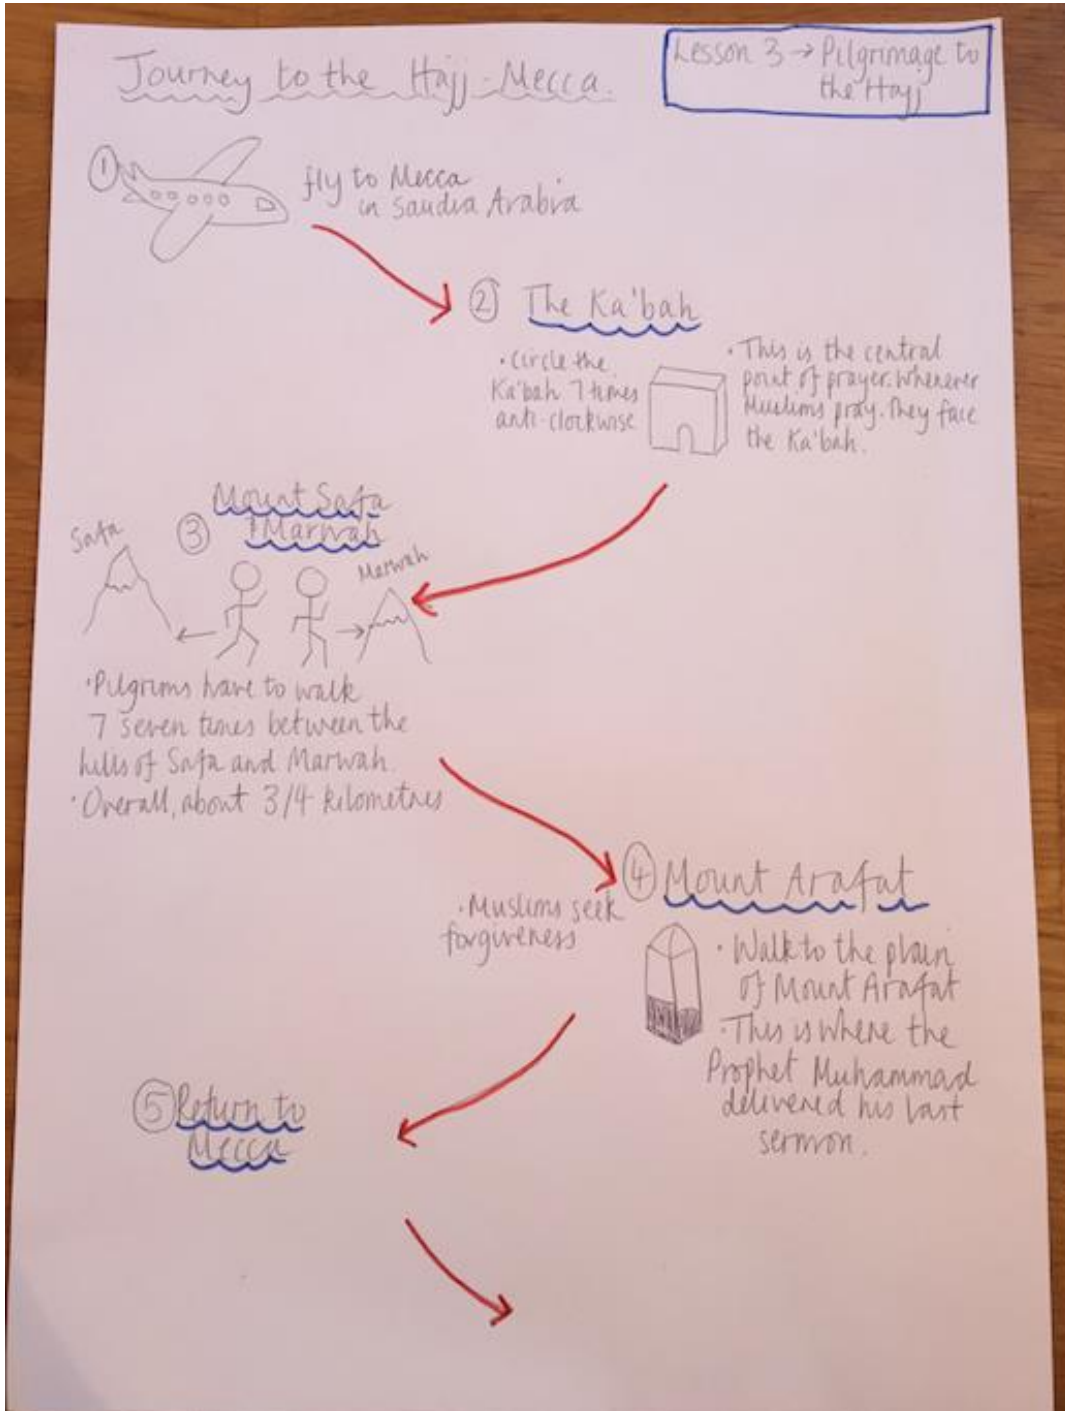 Journey to the Hajj - Mecca.
Lesson 3 → Pilgrimage to
the Hajj
①
fly to Mecca
in Saudia Arabia
② The Ka'bah
• Circle the
Ka'bah 7 times
anti-clockwise
• This is the central
point of prayer. Whenever
Muslims pray. They face
the Ka'bah.
③ Mount Safa
+ Marwah
Safa
Marwah
• Pilgrims have to walk
7 seven times between the
hills of Safa and Marwah.
• Overall, about 3/4 kilometres
④ Mount Arafat
• Muslims seek
forgiveness
• Walk to the plain
of Mount Arafat
• This is where the
Prophet Muhammad
delivered his last
sermon.
⑤ Return to
Mecca